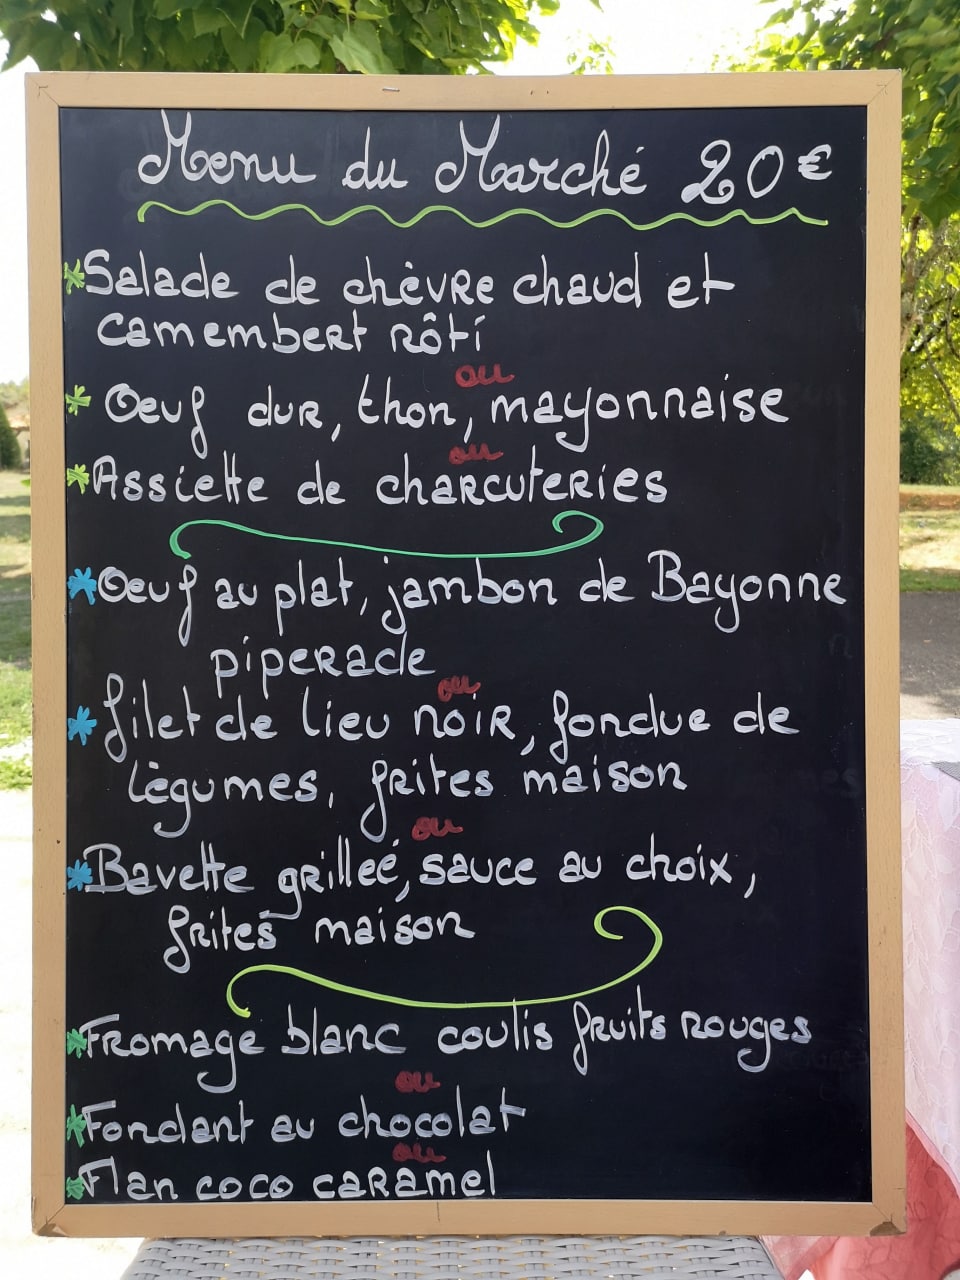 Menu du Marché 20€
*Salade de chèvre chaud et
camembert rôti
ou
* Oeuf dur, thon, mayonnaise
ou
*Assiette de charcuteries
*Oeuf au plat, jambon de Bayonne
piperade
ou
*filet de lieu noir, fondue de
lègumes, frites maison
ou
*Bavette grilleé, sauce au choix,
frites maison
*Fromage blanc coulis fruits rouges
ou
*Fondant au chocolat
ou
*Flan coco caramel